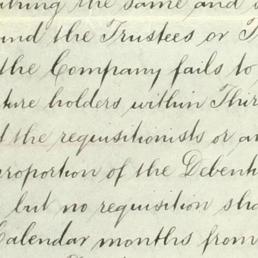 the same and
the Trustees or
the Company fails to
ture holders within Thir
the requisitionists or a
proportion of the Debent
but no requisition sha
Calendar months from